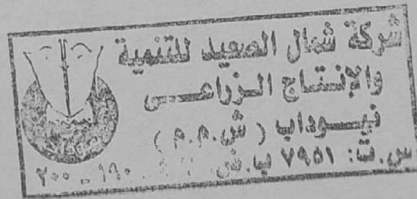 شركة شمال الصعيد للتنمية
والإنتاج الزراعى
نيوداب (ش.م.م)
س.ت: ٧٩٥١ ب.ض ١٩٠ ـ ٢٠٠